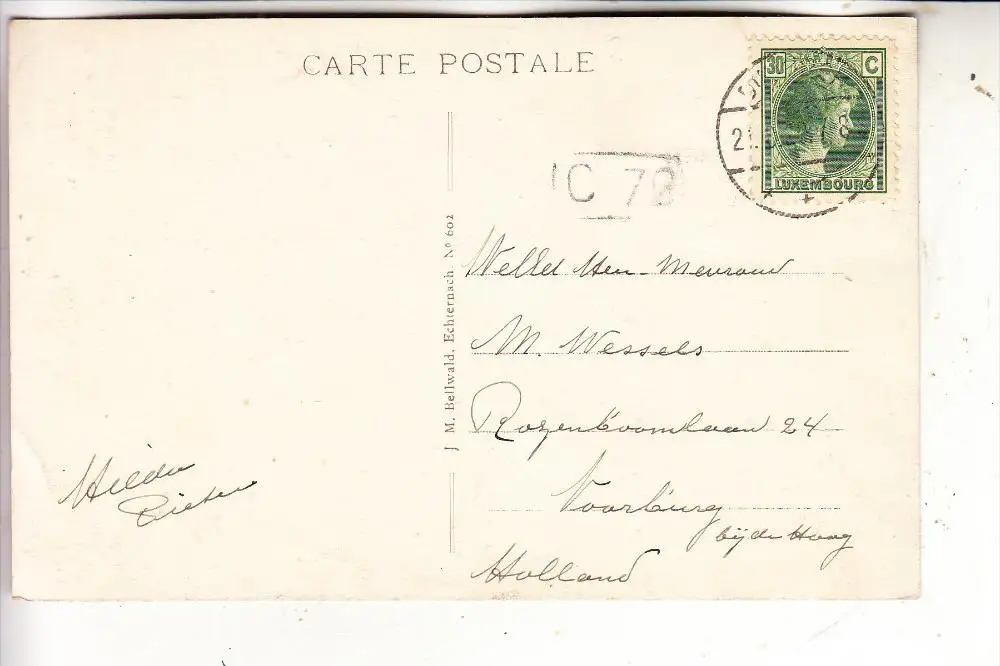 CARTE POSTALE
30 C
LUXEMBOURG
C 72
J. M. Bellwald, Echternach. Nº 602
M. Wessels
Rozenboomlaan 24
Voorburg
bij den Haag
Holland
Hilda
Pieters